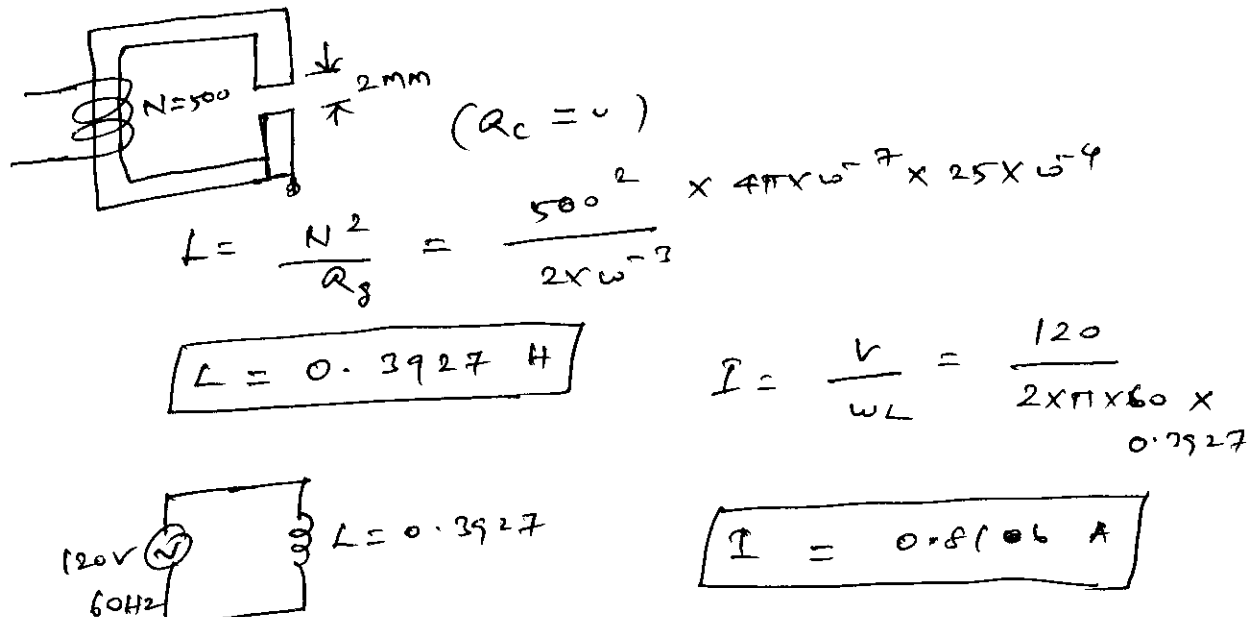 N=500
2mm
(Rc = 0)
L = N² / Rg = 500² / 2×10⁻³ × 4π×10⁻⁷ × 25×10⁻⁴
L = 0.3927 H
I = V / ωL = 120 / 2×π×60 ×
0.3927
120V
60Hz
L = 0.3927
I = 0.8106 A